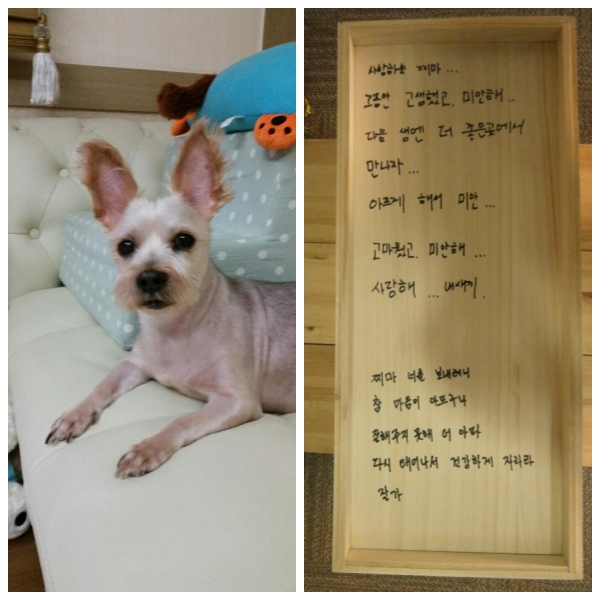 사랑하는 찌마 ...
그동안 고생했고. 미안해 ..
다음 생엔 더 좋은곳에서
만나자 ...
아프게 해서 미안 ...
고마웠고. 미안해 ...
사랑해 ... 내새끼.
찌마 너를 보내려니
참 마음이 아프구나
잘해주지 못해 더 아파
다시 태어나서 건강하게 자라라
잘가